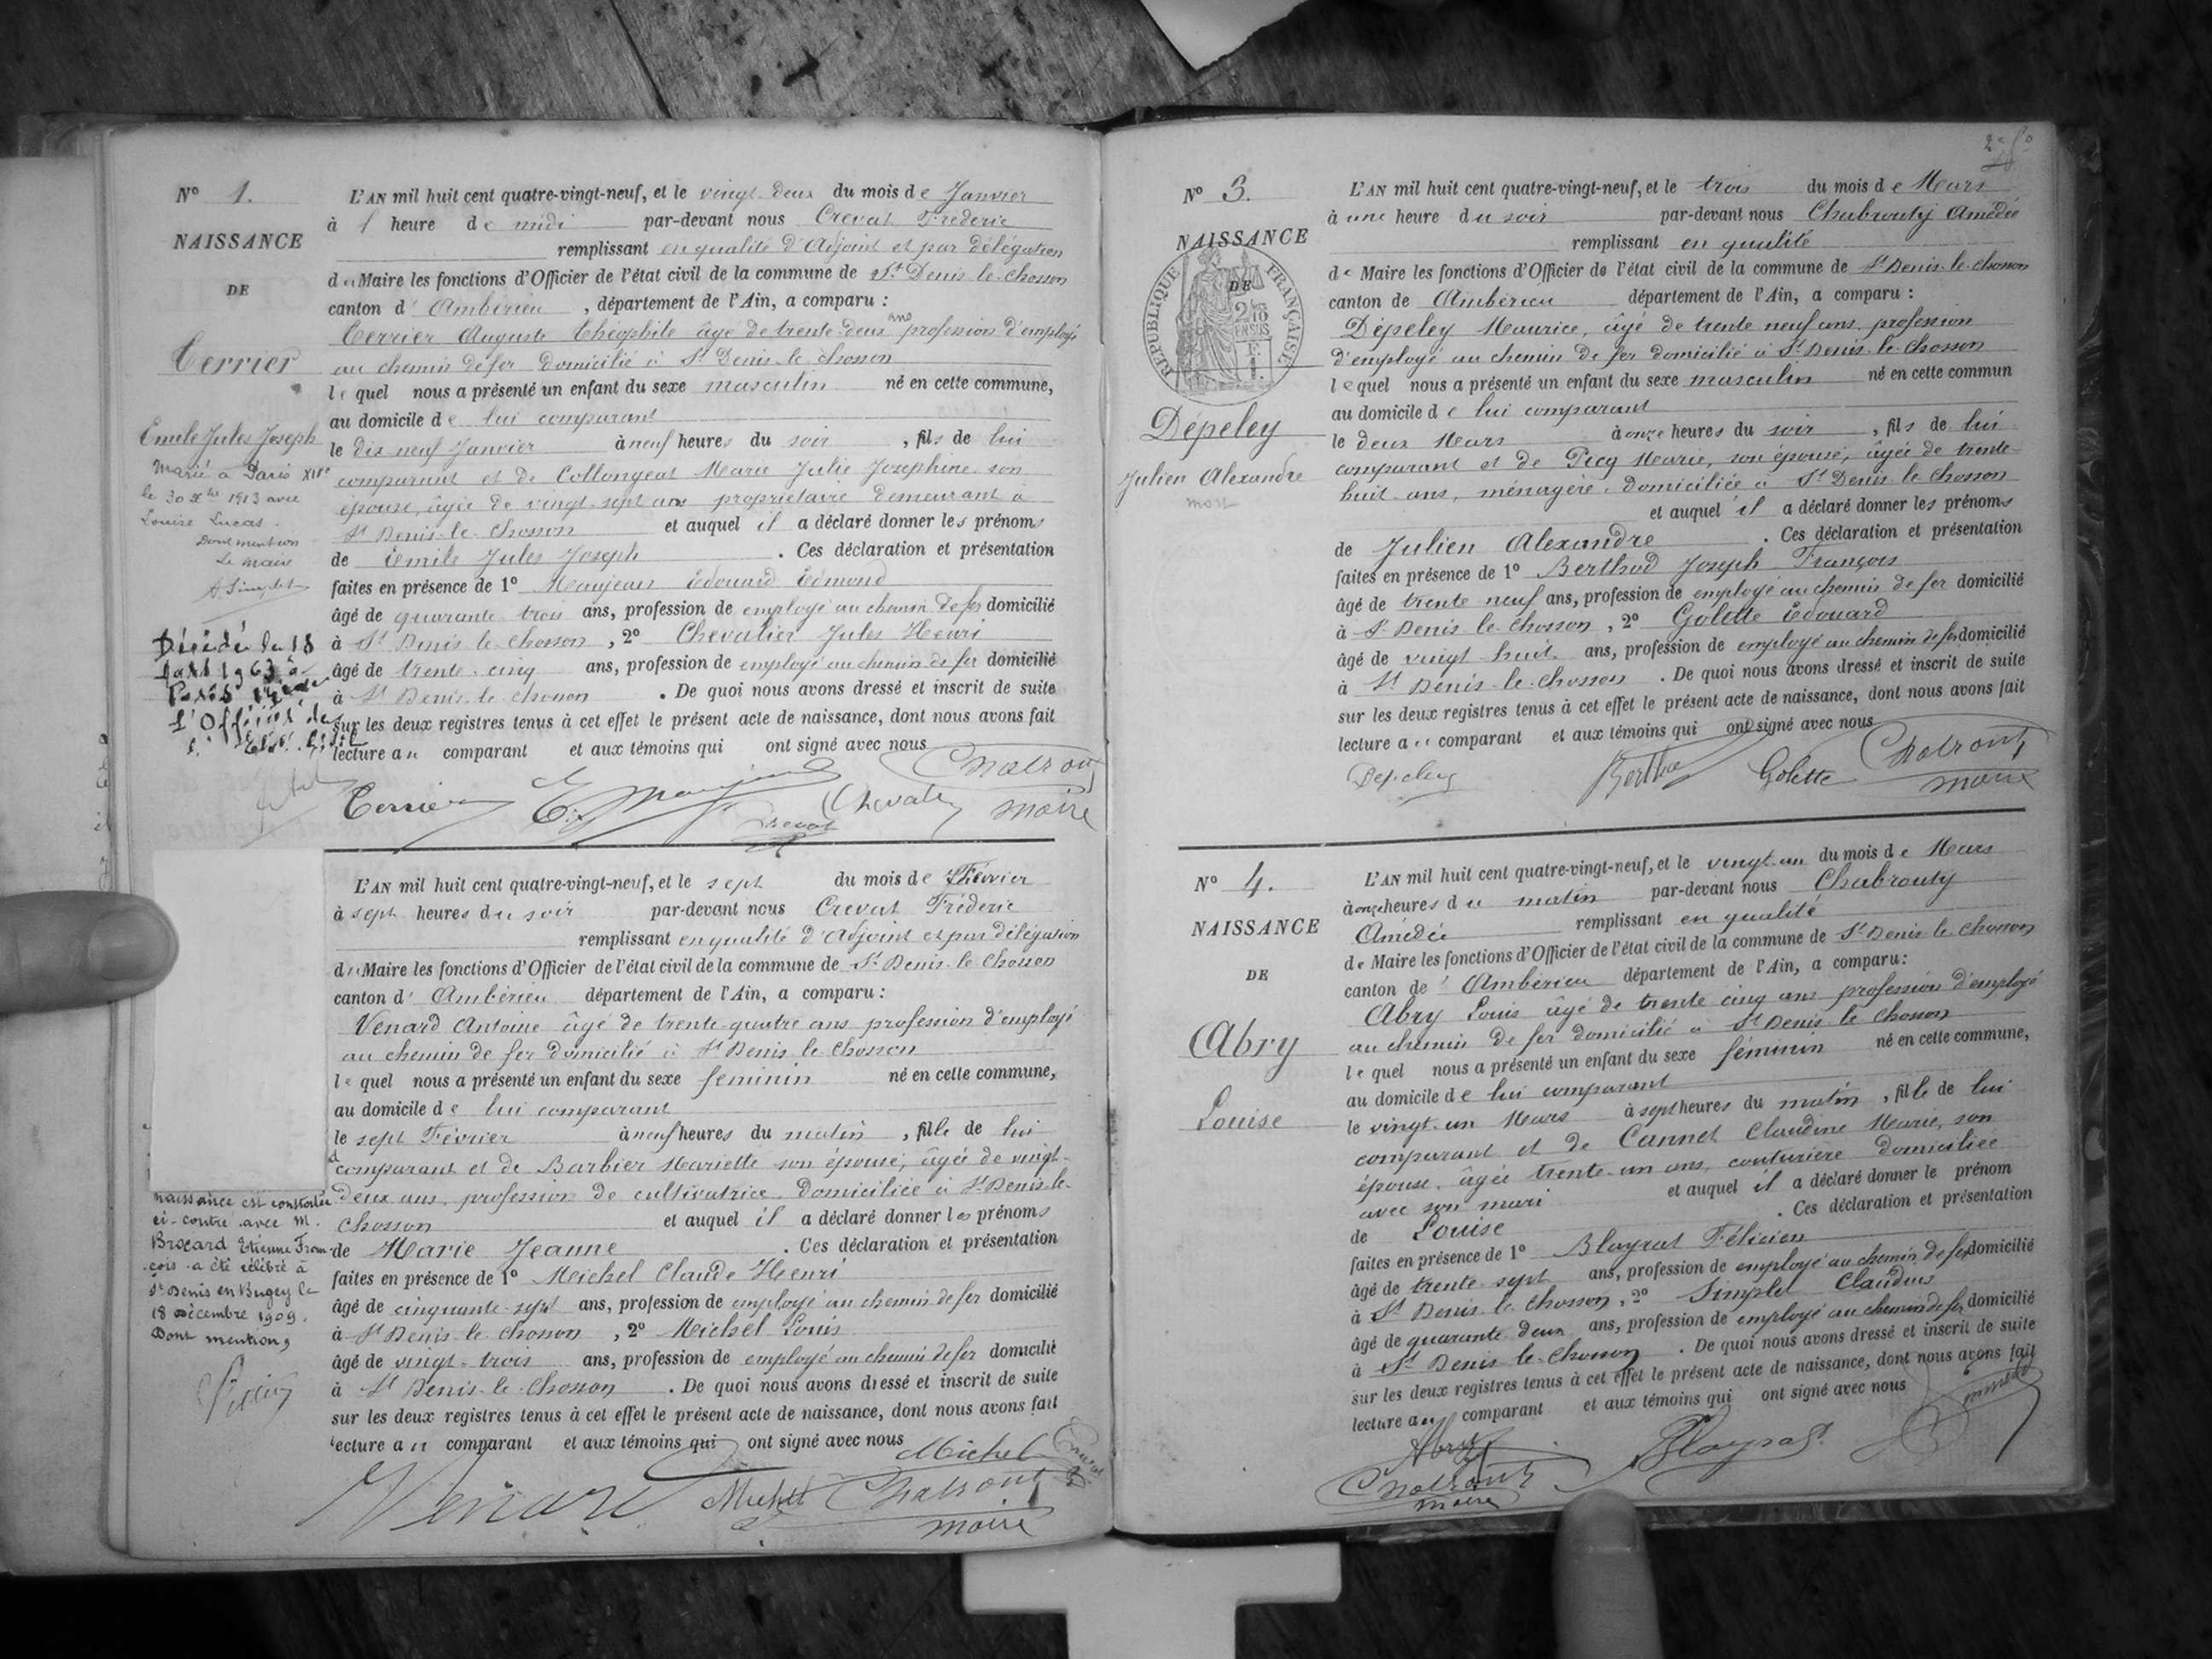 N° 1.
NAISSANCE
DE
Terrier
Emile Jules Joseph
Marié à Paris XIVe
le 30 Xbre 1913 avec
Louise Lucas.
Dont mention
Le Maire
Décédé le 18
1963 à
Paris
L'Officier de
l'Etat Civil
L'AN mil huit cent quatre-vingt-neuf, et le vingt deux du mois de Janvier
à 1 heure de midi par-devant nous Crevat Fréderic
remplissant en qualité d'Adjoint et par délégation
du Maire les fonctions d'Officier de l'état civil de la commune de St Denis le chosson
canton d' Ambérieu , département de l'Ain, a comparu :
Terrier Auguste Théophile âgé de trente deux ans profession d'employé
au chemin de fer domicilié à St Denis le chosson
le quel nous a présenté un enfant du sexe masculin né en cette commune,
au domicile de lui comparant
le dix neuf Janvier à neuf heures du soir , fils de lui
comparant et de Collongeat Marie Julie Josephine son
épouse, âgée de vingt sept ans propriétaire demeurant à
St Denis le Chosson et auquel il a déclaré donner les prénoms
de Emile Jules Joseph . Ces déclaration et présentation
faites en présence de 1° Maujean Edouard Edmond
âgé de quarante trois ans, profession de employé au chemin de fer domicilié
à St Denis le Chosson , 2° Chevalier Jules Henri
âgé de trente cinq ans, profession de employé au chemin de fer domicilié
à St Denis le chosson . De quoi nous avons dressé et inscrit de suite
sur les deux registres tenus à cet effet le présent acte de naissance, dont nous avons fait
lecture au comparant et aux témoins qui ont signé avec nous
Terrier
Crevat
maire
naissance est constatée
ci-contre avec M.
Brocard Etienne Fran-
cois a été célébré à
St Denis en Bugey le
18 Décembre 1909.
Dont mention,
L'AN mil huit cent quatre-vingt-neuf, et le sept du mois de Février
à sept heures du soir par-devant nous Crevat Fréderic
remplissant en qualité d'Adjoint et par délégation
du Maire les fonctions d'Officier de l'état civil de la commune de St Denis le Chosson
canton d' Ambérieu département de l'Ain, a comparu :
Venard Antoine âgé de trente quatre ans profession d'employé
au chemin de fer domicilié à St Denis le Chosson
le quel nous a présenté un enfant du sexe feminin né en cette commune,
au domicile de lui comparant
le sept Février à neuf heures du matin , fille de lui
comparant et de Barbier Mariette son épouse, âgée de vingt-
deux ans, profession de cultivatrice, domiciliée à St Denis le
Chosson et auquel il a déclaré donner les prénoms
de Marie Jeanne . Ces déclaration et présentation
faites en présence de 1° Michel Claude Henri
âgé de cinquante sept ans, profession de employé au chemin de fer domicilié
à St Denis le chosson , 2° Michel Louis
âgé de vingt trois ans, profession de employé au chemin de fer domicilié
à St Denis le Chosson . De quoi nous avons dressé et inscrit de suite
sur les deux registres tenus à cet effet le présent acte de naissance, dont nous avons fait
lecture au comparant et aux témoins qui ont signé avec nous
Michel
Venard
Michel
maire
N° 3.
NAISSANCE
DE
RÉPUBLIQUE FRANÇAISE
Dépeley
Julien Alexandre
mort
L'AN mil huit cent quatre-vingt-neuf, et le trois du mois de Mars
à une heure du soir par-devant nous Chabrouty Amédée
remplissant en qualité
de Maire les fonctions d'Officier de l'état civil de la commune de St Denis le chosson
canton de Ambérieu département de l'Ain, a comparu :
Dépeley Maurice, âgé de trente neuf ans, profession
d'employé au chemin de fer domicilié à St Denis le Chosson
le quel nous a présenté un enfant du sexe masculin né en cette commun
au domicile de lui comparant
le deux Mars à onze heures du soir , fils de lui
comparant et de Picq Marie, son épouse, âgée de trente
huit ans, ménagère, domiciliée à St Denis le Chosson
et auquel il a déclaré donner les prénoms
de Julien Alexandre . Ces déclaration et présentation
faites en présence de 1° Berthod Joseph François
âgé de trente neuf ans, profession de employé au chemin de fer domicilié
à St Denis le Chosson , 2° Golette Edouard
âgé de vingt huit ans, profession de employé au chemin de fer domicilié
à St Denis le Chosson . De quoi nous avons dressé et inscrit de suite
sur les deux registres tenus à cet effet le présent acte de naissance, dont nous avons fait
lecture au comparant et aux témoins qui ont signé avec nous
Depeley Golette
maire
N° 4.
NAISSANCE
DE
Abry
Louise
L'AN mil huit cent quatre-vingt-neuf, et le vingt un du mois de Mars
à onze heures du matin par-devant nous Chabrouty
Amédée remplissant en qualité
de Maire les fonctions d'Officier de l'état civil de la commune de St Denis le Chosson
canton de Ambérieu département de l'Ain, a comparu :
Abry Louis âgé de trente cinq ans profession d'employé
au chemin de fer domicilié à St Denis le Chosson
le quel nous a présenté un enfant du sexe féminin né en cette commune,
au domicile de lui comparant
le vingt un Mars à sept heures du matin , fille de lui
comparant et de Cannet Claudine Marie, son
épouse, âgée trente un ans, couturière domiciliée
avec son mari et auquel il a déclaré donner le prénom
de Louise . Ces déclaration et présentation
faites en présence de 1° Blayrat Félicien
âgé de trente sept ans, profession de employé au chemin de fer domicilié
à St Denis le Chosson , 2° Simplet Claudius
âgé de quarante deux ans, profession de employé au chemin de fer domicilié
à St Denis le Chosson . De quoi nous avons dressé et inscrit de suite
sur les deux registres tenus à cet effet le présent acte de naissance, dont nous avons fait
lecture au comparant et aux témoins qui ont signé avec nous
Abry
maire